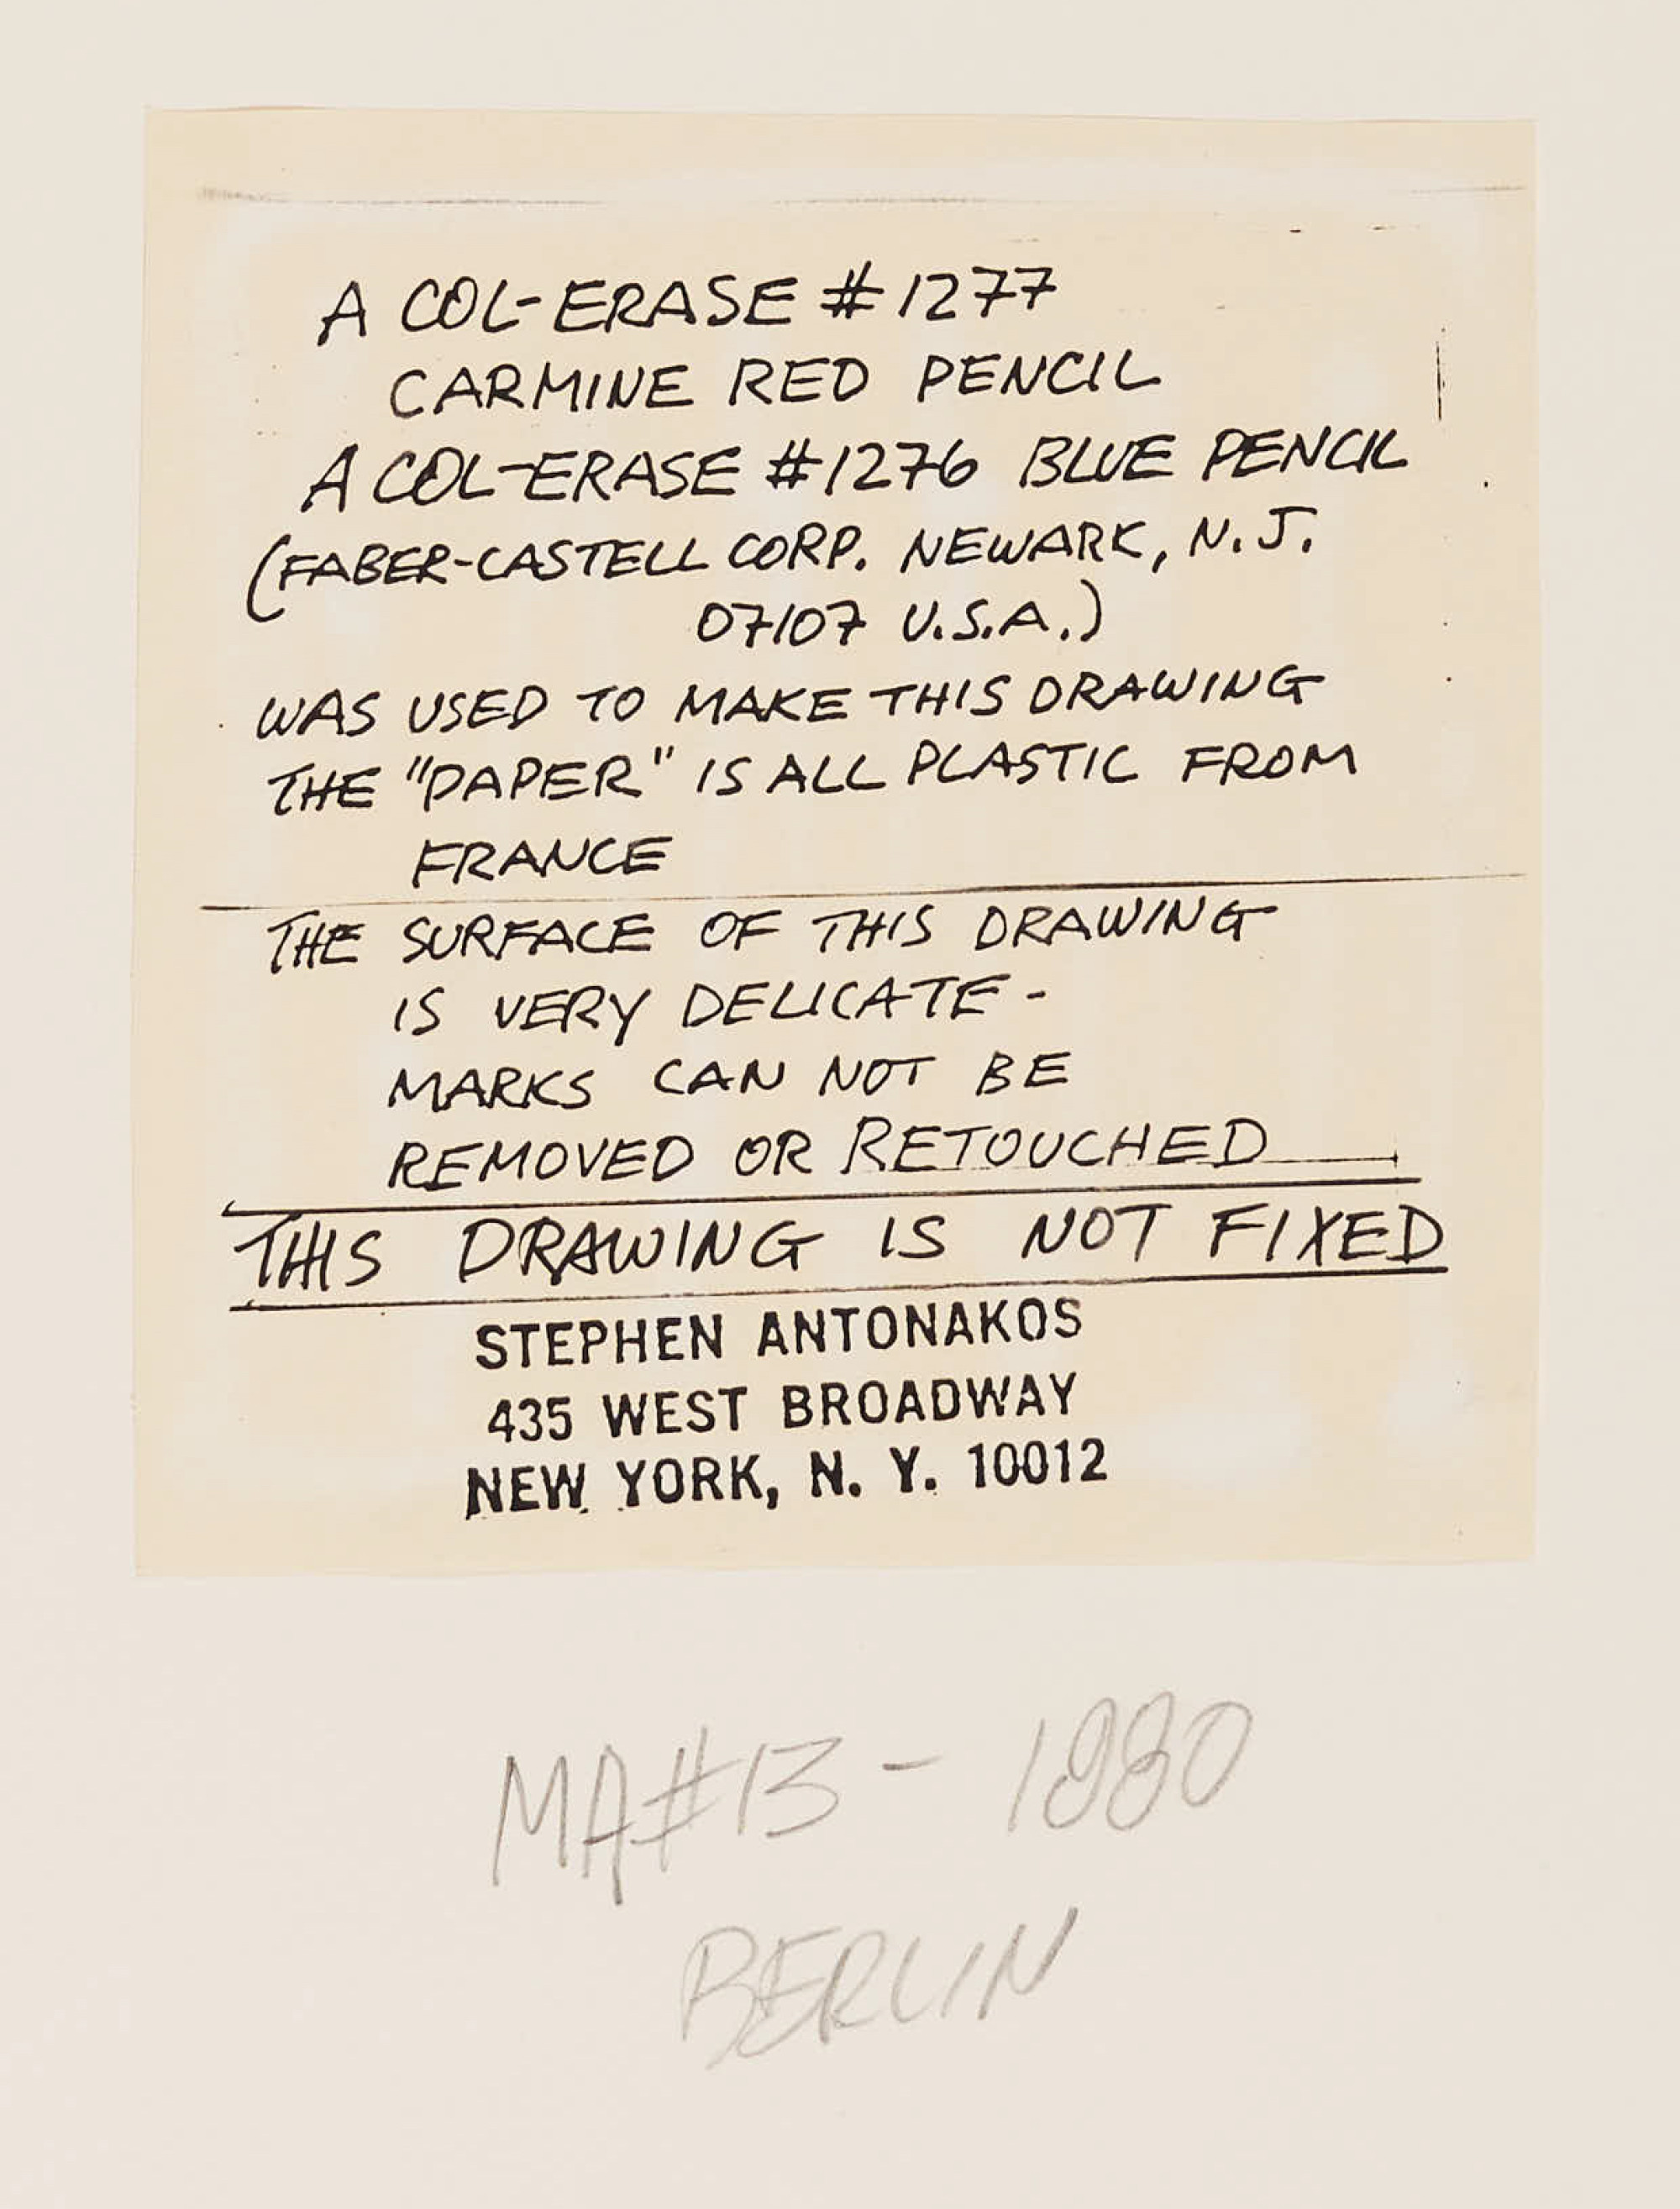 A COL-ERASE #1277
CARMINE RED PENCIL
A COL-ERASE #1276 BLUE PENCIL
(FABER-CASTELL CORP. NEWARK, N.J.
07107 U.S.A.)
WAS USED TO MAKE THIS DRAWING
THE "PAPER" IS ALL PLASTIC FROM
FRANCE
THE SURFACE OF THIS DRAWING
IS VERY DELICATE -
MARKS CAN NOT BE
REMOVED OR RETOUCHED
THIS DRAWING IS NOT FIXED
STEPHEN ANTONAKOS
435 WEST BROADWAY
NEW YORK, N. Y. 10012
MA#13 - 1980
BERLIN